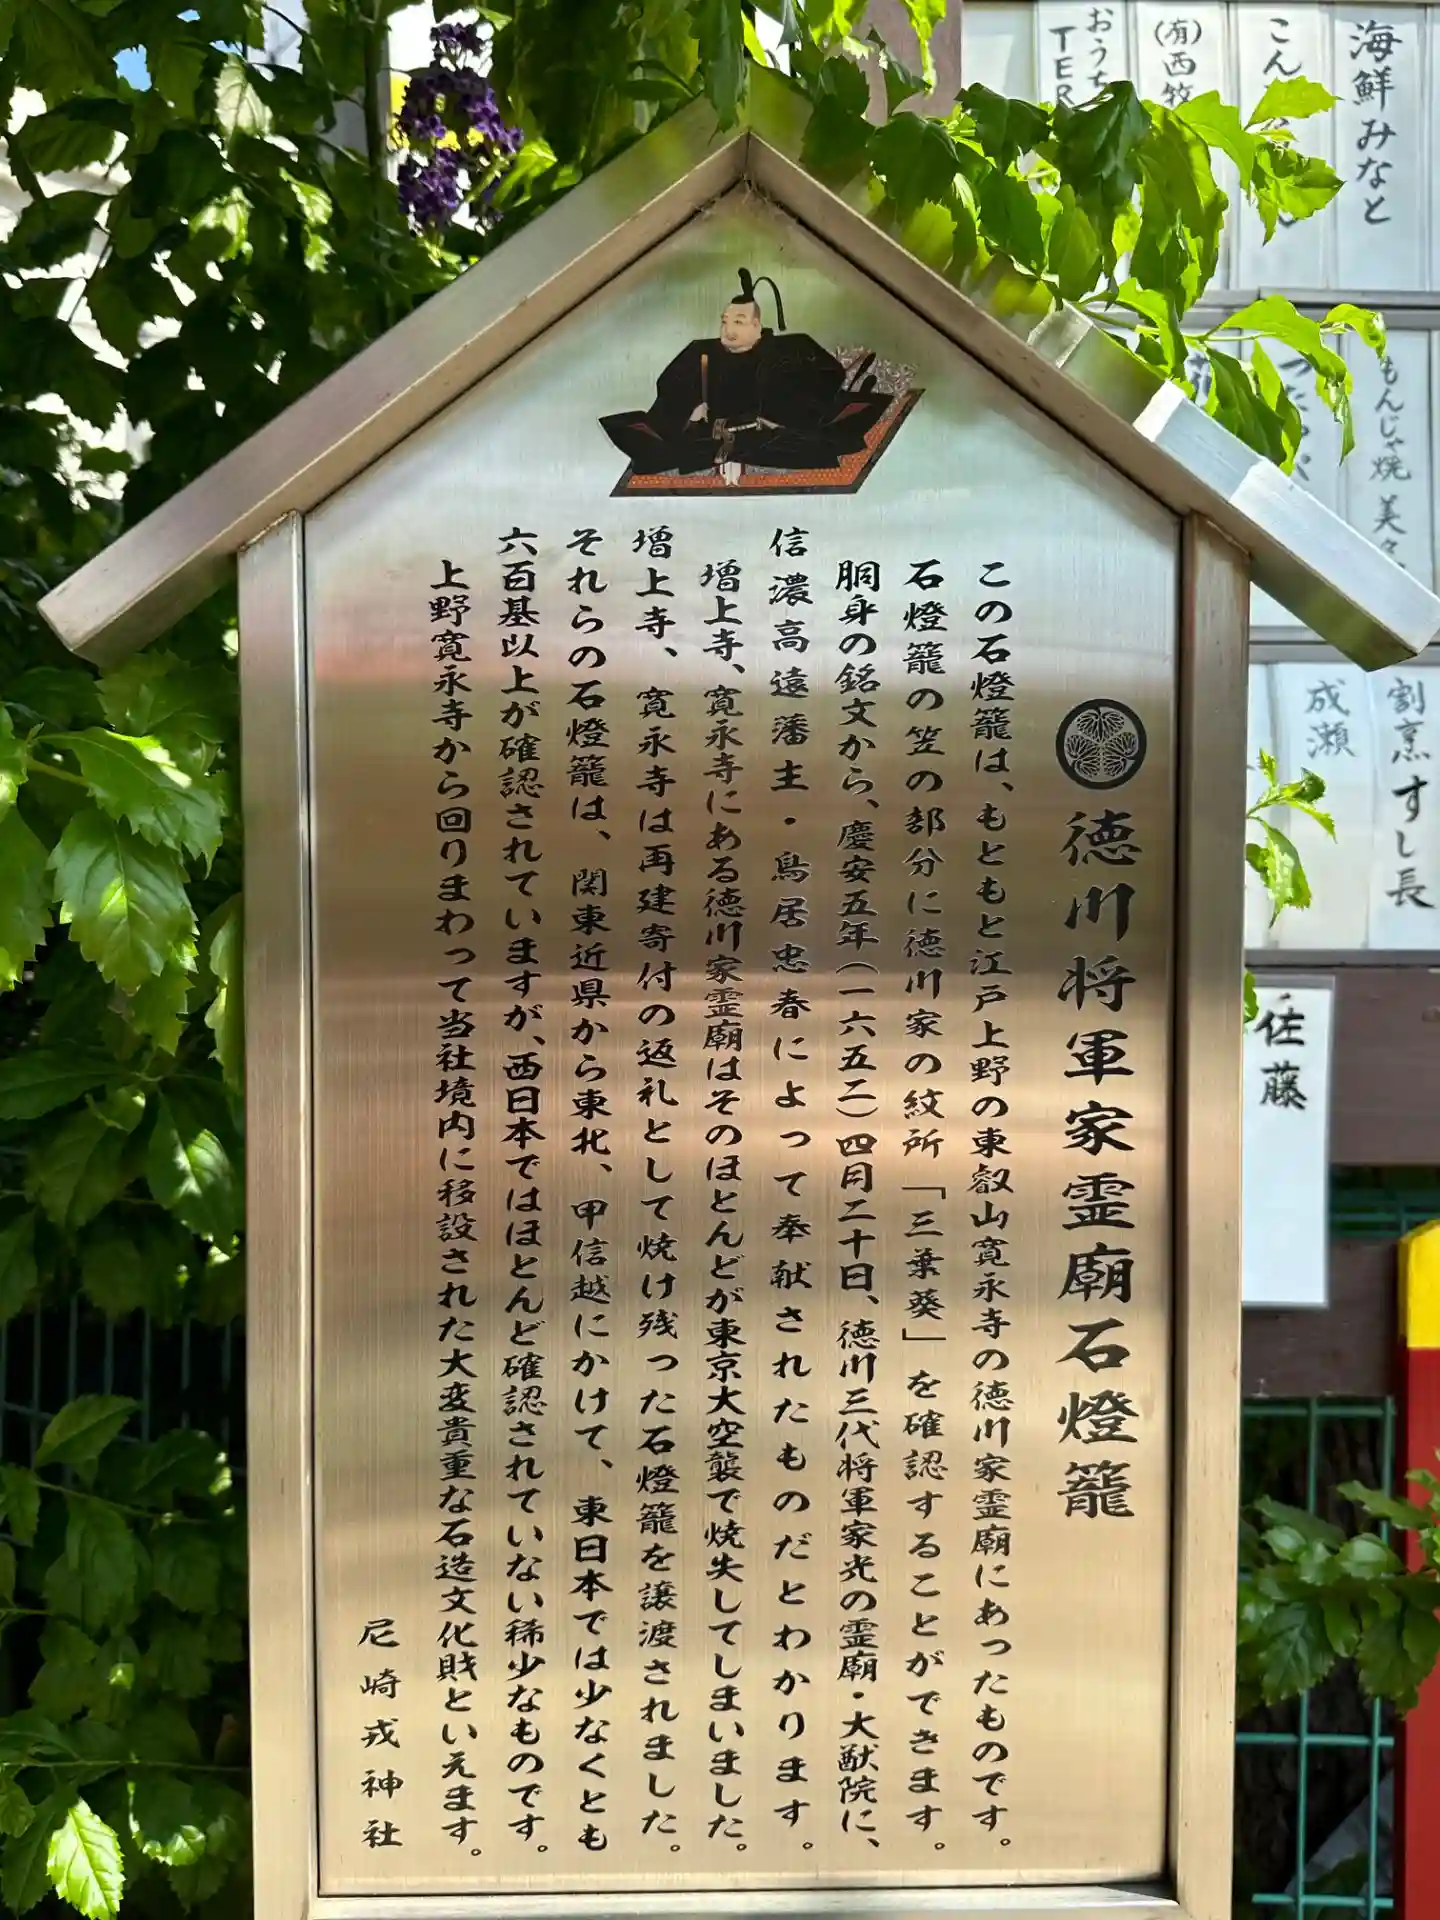 徳川将軍家霊廟石燈籠
この石燈籠は、もともと江戸上野の東叡山寛永寺の徳川家霊廟にあったものです。
石燈籠の笠の部分に徳川家の紋所「三葉葵」を確認することができます。
胴身の銘文から、慶安五年(一六五二)四月二十日、徳川三代将軍家光の霊廟・大猷院に、
信濃高遠藩主・鳥居忠春によって奉献されたものだとわかります。
増上寺、寛永寺にある徳川家霊廟はそのほとんどが東京大空襲で焼失してしまいました。
増上寺、寛永寺は再建寄付の返礼として焼け残った石燈籠を譲渡されました。
それらの石燈籠は、関東近県から東北、甲信越にかけて、東日本では少なくとも
六百基以上が確認されていますが、西日本ではほとんど確認されていない稀少なものです。
上野寛永寺から回りまわって当社境内に移設された大変貴重な石造文化財といえます。
尼崎戎神社
海鮮みなと
(有)西牧
おうち
TER
もんじゃ焼 美々
割烹すし長
成瀬
佐藤